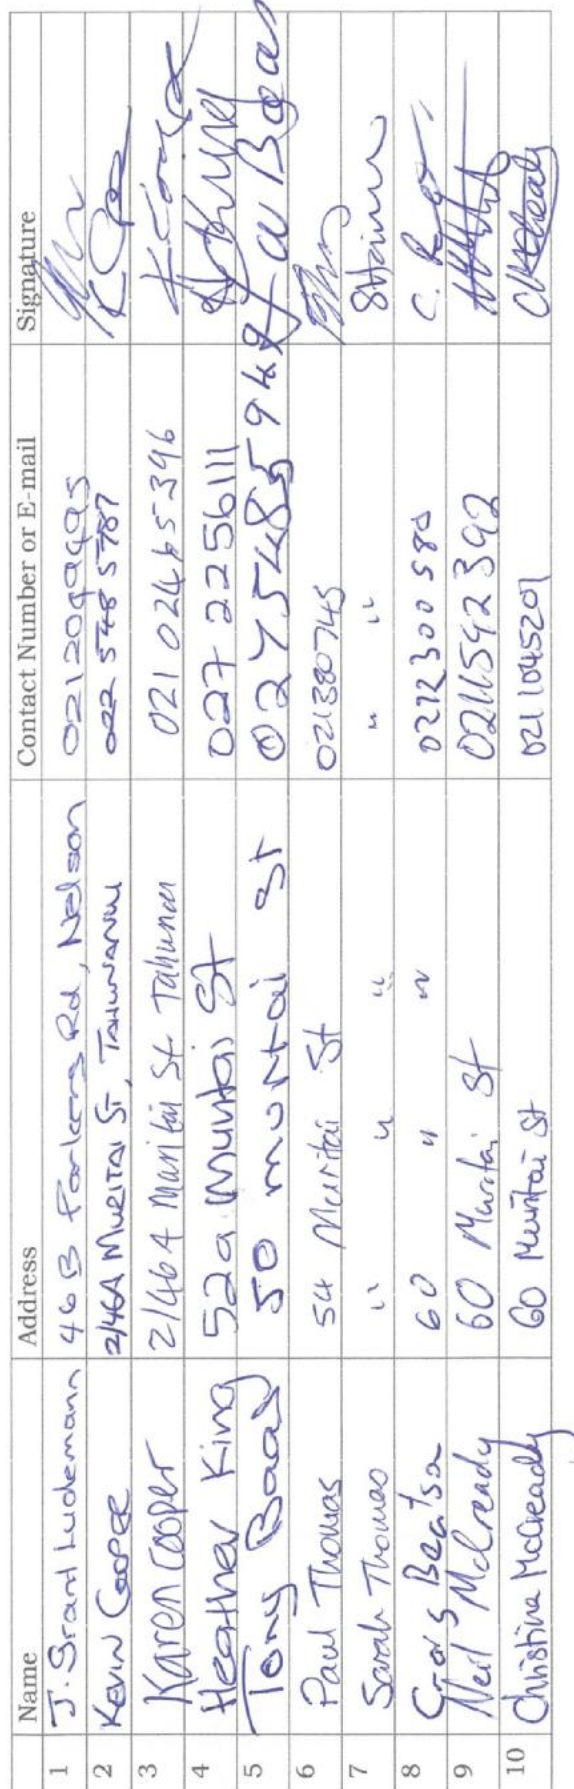 Name Address Contact Number or E-mail Signature
1 J. Grant Ludemann 46B Parkers Rd, Nelson 0212049495
2 KEVIN COOPER 2/46A MURITAI ST, TAHUNANUI 022 548 5787
3 Karen Cooper 2/46A Muritai St Tahuna 021 02465396
4 Heather King 52a Muritai St 027 2256111
5 Tony 50 muritai St
6 Paul Thomas 54 Muritai St 021380745
7 Sarah Thomas " " " " "
8 Craig Beatson 60 " " 0272300580
9 Neil McCready 60 Muritai St 0211592392
10 Christine McCready 60 Muritai St 0211045201